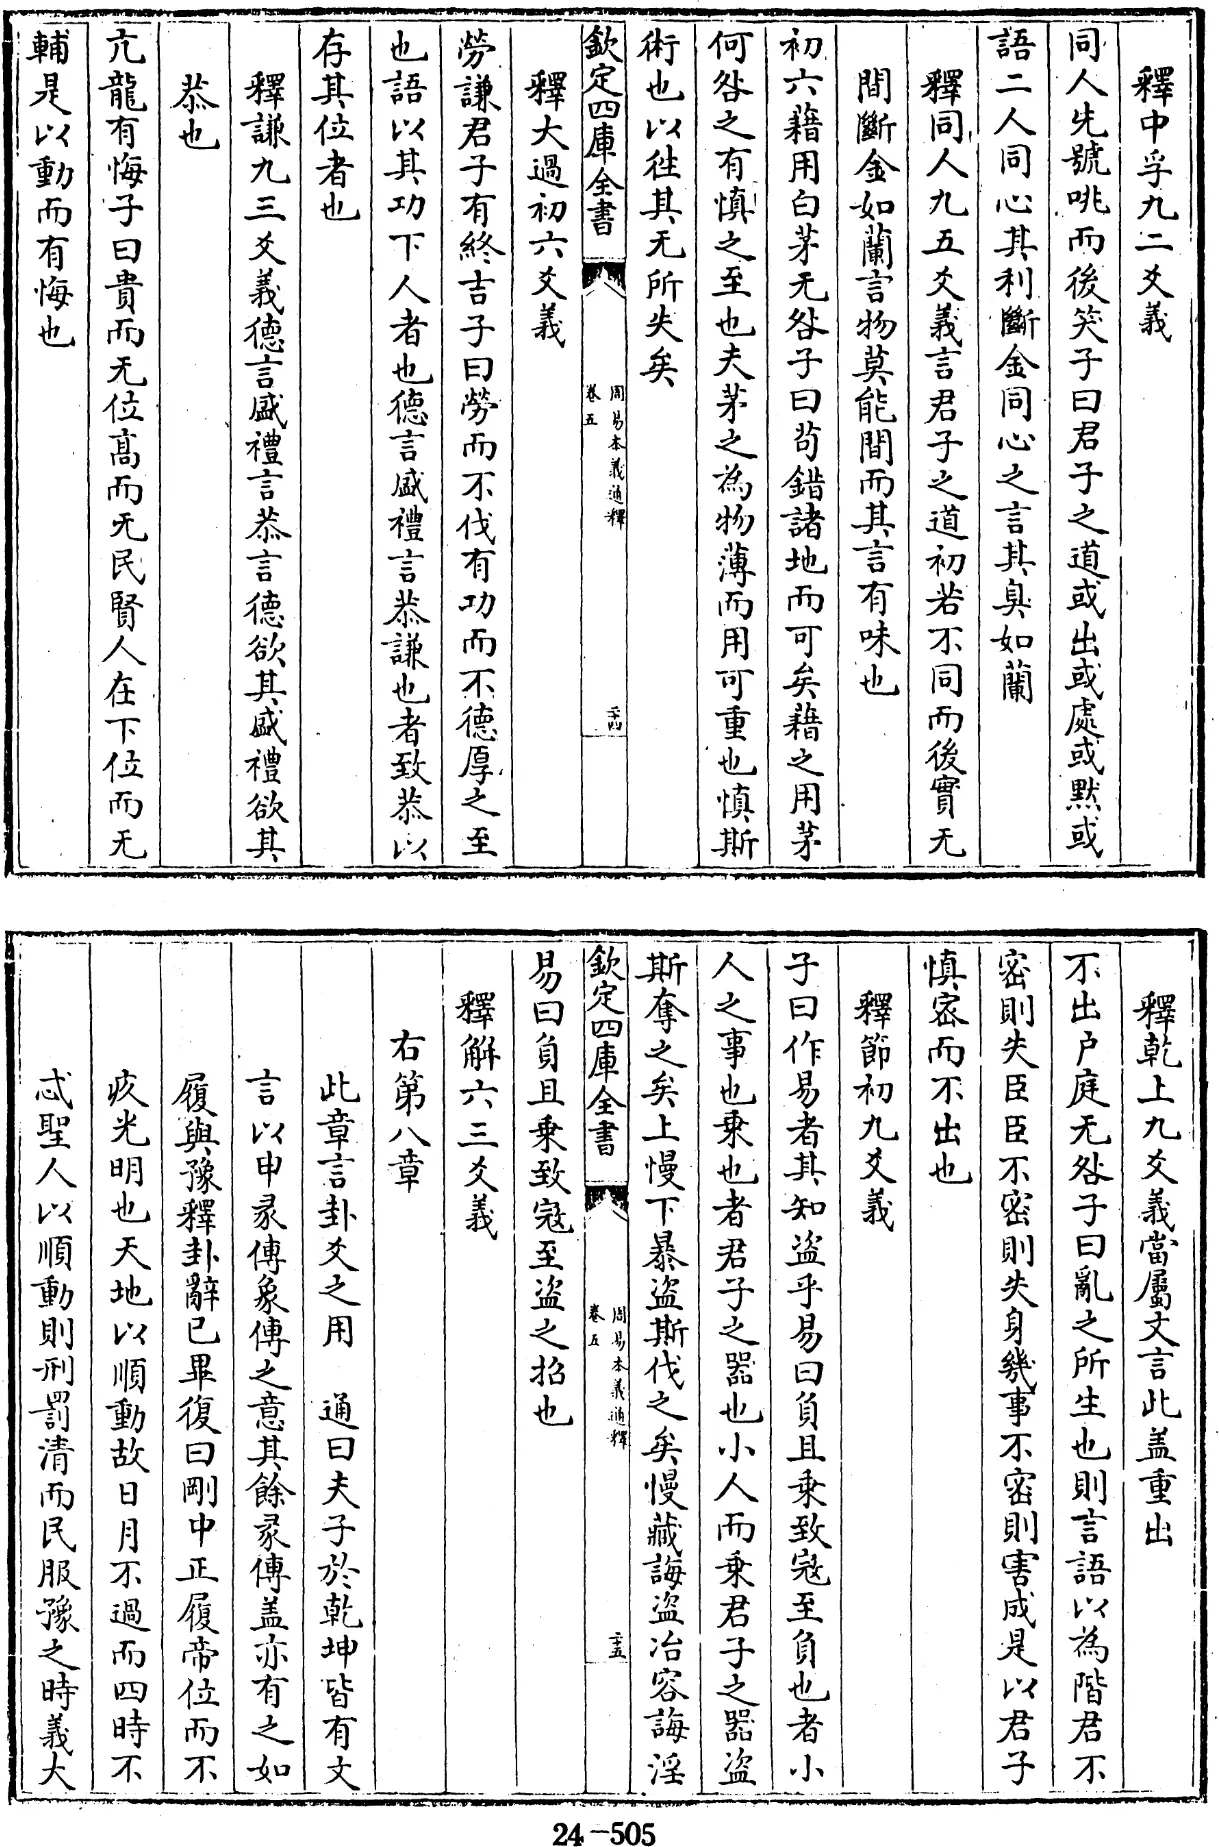 釋中孚九二爻義
同人先號咷而後笑子曰君子之道或出或處或默或
語二人同心其利斷金同心之言其臭如蘭
釋同人九五爻義言君子之道初若不同而後實无
間斷金如蘭言物莫能間而其言有味也
初六藉用白茅无咎子曰茍錯諸地而可矣藉之用茅
何咎之有慎之至也夫茅之為物薄而用可重也慎斯
術也以往其无所失矣
欽定四庫全書
周易本義通釋
卷五
二十四
釋大過初六爻義
勞謙君子有終吉子曰勞而不伐有功而不德厚之至
也語以其功下人者也德言盛禮言恭謙也者致恭以
存其位者也
釋謙九三爻義德言盛禮言恭言德欲其盛禮欲其
恭也
亢龍有悔子曰貴而无位髙而无民賢人在下位而无
輔是以動而有悔也
釋乾上九爻義當屬文言此盖重出
不出户庭无咎子曰亂之所生也則言語以為階君不
密則失臣臣不密則失身幾事不密則害成是以君子
慎密而不出也
釋節初九爻義
子曰作易者其知盜乎易曰負且乗致寇至負也者小
人之事也乗也者君子之器也小人而乗君子之器盜
斯奪之矣上慢下暴盜斯伐之矣慢藏誨盜冶容誨淫
欽定四庫全書
周易本義通釋
卷五
二十五
易曰負且乗致寇至盜之招也
釋解六三爻義
右第八章
此章言卦爻之用　通曰夫子於乾坤皆有文
言以申彖傳象傳之意其餘彖傳盖亦有之如
履與豫釋卦辭已畢復曰剛中正履帝位而不
疚光明也天地以順動故日月不過而四時不
忒聖人以順動則刑罰清而民服豫之時義大
24-505